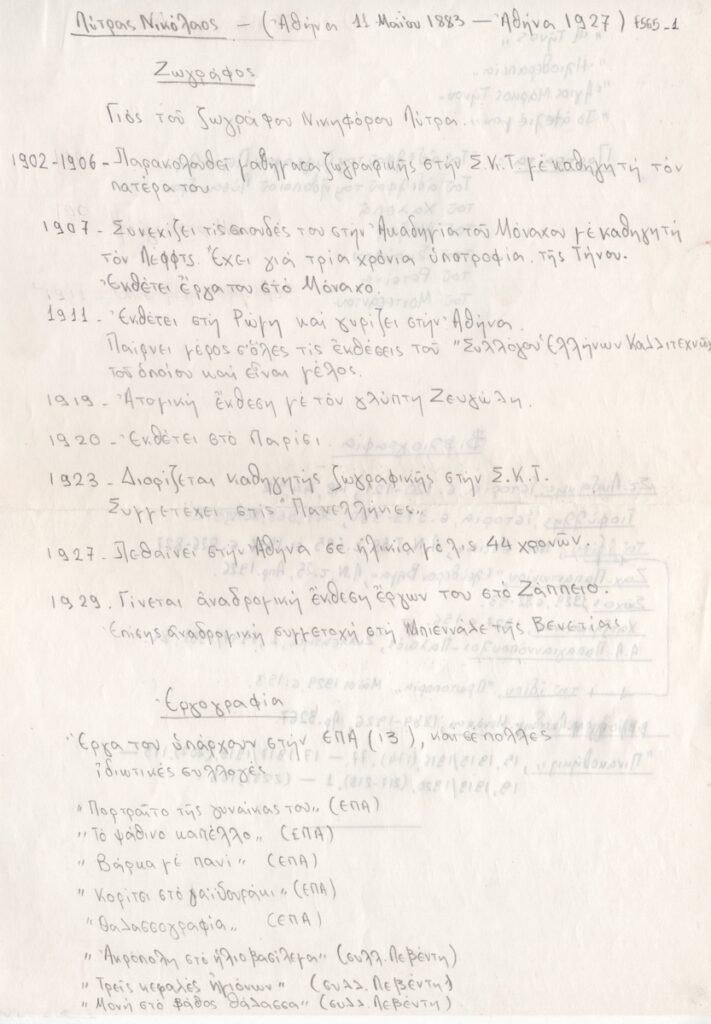 Λύτρας Νικόλαος - (Ἀθήνα 11 Μαΐου 1883 - Ἀθήνα 1927) f565-1
Ζωγράφος
Γιὸς τοῦ ζωγράφου Νικηφόρου Λύτρα.
1902-1906 - Παρακολουθεῖ μαθήματα ζωγραφικῆς στὴν Σ.Κ.Τ. μὲ καθηγητὴ τὸν
πατέρα του
1907 - Συνεχίζει τὶς σπουδές του στὴν Ἀκαδημία τοῦ Μόναχου μὲ καθηγητὴ
τὸν Λέφφτς. Ἔχει γιὰ τρία χρόνια ὑποτροφία τῆς Τήνου.
Ἐκθέτει ἔργα του στὸ Μόναχο.
1911 - Ἐκθέτει στὴ Ρώμη καὶ γυρίζει στὴν Ἀθήνα.
Παίρνει μέρος σ'ὅλες τὶς ἐκθέσεις τοῦ "Συλλόγου Ἑλλήνων Καλλιτεχνῶν
τοῦ ὁποίου καὶ εἶναι μέλος.
1919 - Ἀτομικὴ ἔκθεση μὲ τὸν γλύπτη Ζευγώλη.
1920 - Ἐκθέτει στὸ Παρίσι
1923 - Διορίζεται καθηγητὴς ζωγραφικῆς στὴν Σ.Κ.Τ.
Συμμετέχει στὶς "Πανελλήνιες"
1927 - Πεθαίνει στὴν Ἀθήνα σὲ ἡλικία μόλις 44 χρονῶν.
1929 - Γίνεται ἀναδρομικὴ ἔκθεση ἔργων του στὸ Ζάππειο.
Ἐπίσης ἀναδρομικὴ συμμετοχὴ στὴ Μπιεννάλε τῆς Βενετίας
Ἐργογραφία
Ἔργα του ὑπάρχουν στὴν ΕΠΑ (13), καὶ σὲ πολλὲς
ἰδιωτικὲς συλλογὲς
"Πορτραῖτο τῆς γυναίκας του" (ΕΠΑ)
"Τὸ ψάθινο καπέλλο" (ΕΠΑ)
"Βάρκα μὲ πανί" (ΕΠΑ)
"Κορίτσι στὸ γαϊδουράκι" (ΕΠΑ)
"Θαλασσογραφία" (ΕΠΑ)
"Ἀκρόπολη στὸ ἡλιοβασίλεμα" (συλλ. Λεβέντη)
"Τρεῖς κεφαλὲς ἡμιόνων" (συλλ. Λεβέντη)
"Μονὴ στὸ βάθος θάλασσα" (συλλ. Λεβέντη)